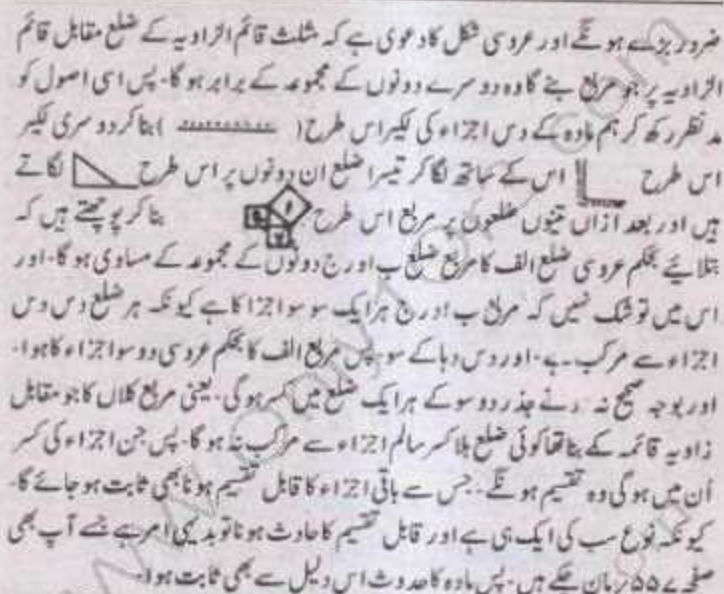 ضرور بڑے ہونگے اور عروسی شکل کا دعوی ہے کہ مثلث قائم الزاویہ کے ضلع مقابل قائم
الزاویہ پر جو مربع بنے گا وہ دوسرے دونوں کے مجموعہ کے برابر ہو گا۔ پس اسی اصول کو
مد نظر رکھ کر ہم مادہ کے دس اجزاء کی لکیر اس طرح ( ) بنا کر دوسری لکیر
اس طرح اس کے ساتھ لگا کر تیسرا ضلع ان دونوں پر اس طرح لگاتے
ہیں اور بعد ازاں تینوں ضلعوں پر مربع اس طرح بنا کر پوچھتے ہیں کہ
بتلائیے بحکم عروسی ضلع الف کا مربع ضلع ب اور ج دونوں کے مجموعہ کے مساوی ہو گا۔ اور
اس میں تو شک نہیں کہ مربع ب اور ج ہر ایک سو سو اجزا کا ہے کیونکہ ہر ضلع دس دس
اجزاء سے مرکب ہے۔ اور دس دہا کے سو پس مربع الف کا بحکم عروسی دو سو اجزاء کا ہوا۔
اور بوجہ صحیح نہ ہونے جذر دو سو کے ہر ایک ضلع میں کسر ہو گی۔ یعنی مربع کلاں کا جو مقابل
زاویہ قائمہ کے بنا تھا کوئی ضلع بلا کسر سالم اجزاء سے مرکب نہ ہو گا۔ پس جن اجزاء کی کسر
اُن میں ہو گی وہ تقسیم ہونگے۔ جس سے باقی اجزاء کا قابل تقسیم ہونا بھی ثابت ہو جائے گا۔
کیونکہ نوع سب کی ایک ہی ہے اور قابل تقسیم کا حادث ہونا تو بدیہی امر ہے جسے آپ بھی
صفحہ ۵۵۷ پر مان چکے ہیں۔ پس مادہ کا حدوث اس دلیل سے بھی ثابت ہوا۔